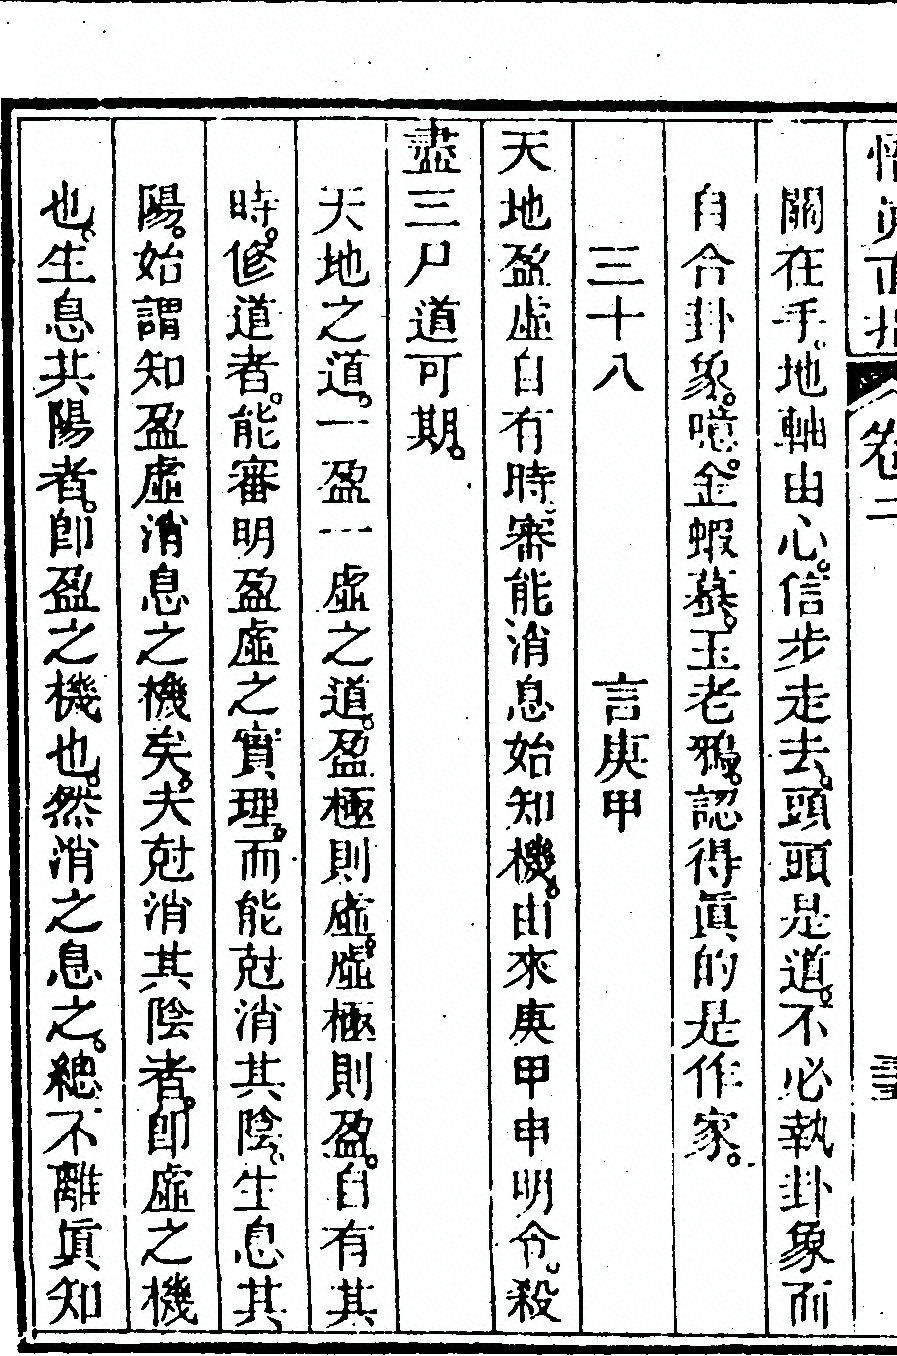 悟真直指 卷二
關在手、地軸由心。信步走去。頭頭是道。不必執卦象而
自合卦象。噫。金蝦蟇。玉老鴉。認得眞的是作家。
三十八 言庚甲
天地盈虛自有時、審能消息始知機。由來庚甲申明令。殺
盡三尸道可期。
天地之道。一盈一虛之道。盈極則虛。虛極則盈。自有其
時。修道者。能審明盈虛之實理。而能尅消其陰、生息其
陽。始謂知盈虛消息之機矣。夫尅消其陰者。卽虛之機
也、生息其陽者。卽盈之機也。然消之息之。總不離眞知